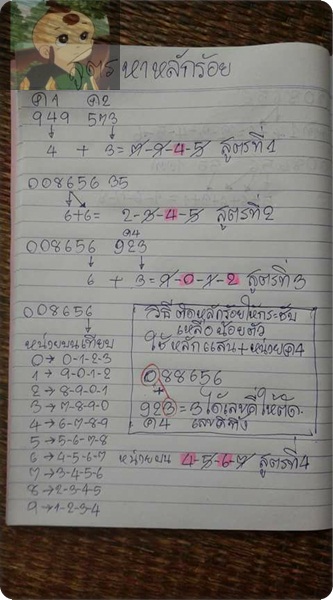 สูตรหาหลักร้อย
ต1 ต2
949 573
4 + 3 = 7-8-4-5 สูตรที่1
008656 35
6+6= 2-3-4-5 สูตรที่2
ต4
008656 923
6 + 3 = 9-0-1-2 สูตรที่3
008656
หน่วยบนเทียบ
0→0-1-2-3
1→9-0-1-2
2→8-9-0-1
3→7-8-9-0
4→6-7-8-9
5→5-6-7-8
6→4-5-6-7
7→3-4-5-6
8→2-3-4-5
9→1-2-3-4
วิธีตัดหลักร้อยให้กระชับ
เหลือน้อยตัว
ใช้หลักแสน+หน่วยต4
088656
+
923=3 ได้เลขคี่ให้ตัด
ต4
หน่วยบน 4-5-6-7 สูตรที่4